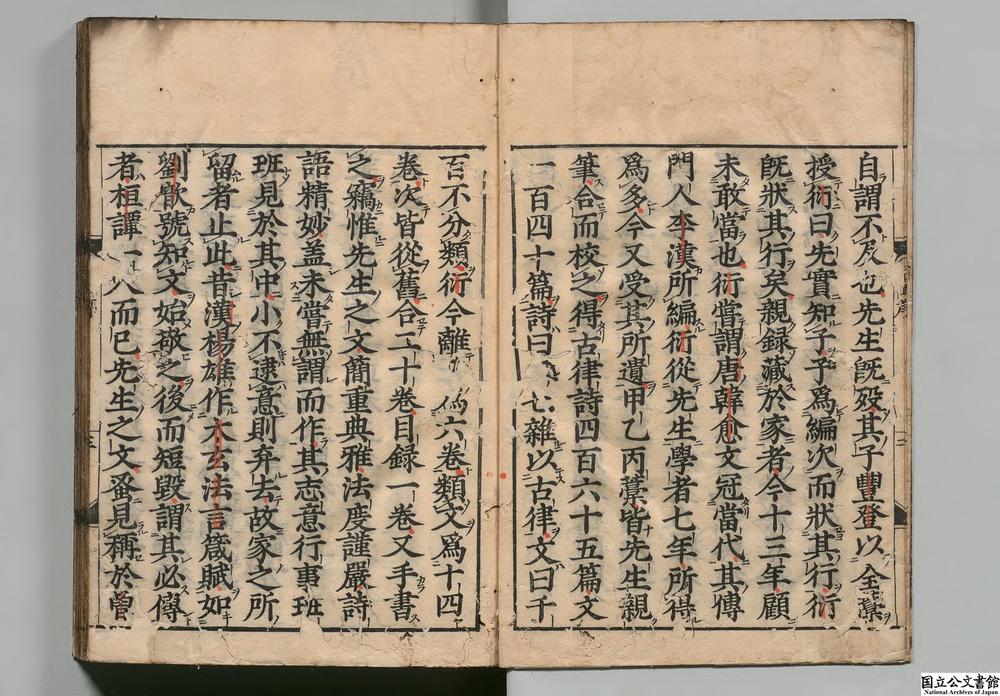 自謂不及也先生既歿其子豐登以全藁
授衍曰先實知子子爲編次而狀其行衍
既狀其行矣親録藏於家者今十三年顧
未敢當也衍嘗謂唐韓愈文冠當代其傳
門人李漢所編衍從先生學者七年所得
爲多今又受其所遺甲乙丙藁皆先生親
筆合而校之得古律詩四百六十五篇文
一百四十篇詩曰七雜以古律文曰千
百不分類衍今離爲六卷類文爲十四
卷次皆從舊合二十卷目録一卷又手書
之竊惟先生之文簡重典雅法度謹嚴詩
語精妙盖未嘗無謂而作其志意行事班
班見於其中小不逮意則弃去故家之所
留者止此昔漢楊雄作太玄法言箴賦如
劉歆號知文始敬之後而短毀謂其必傳
者桓譚一人而已先生之文蚤見稱於曾
国立公文書館
National Archives of Japan